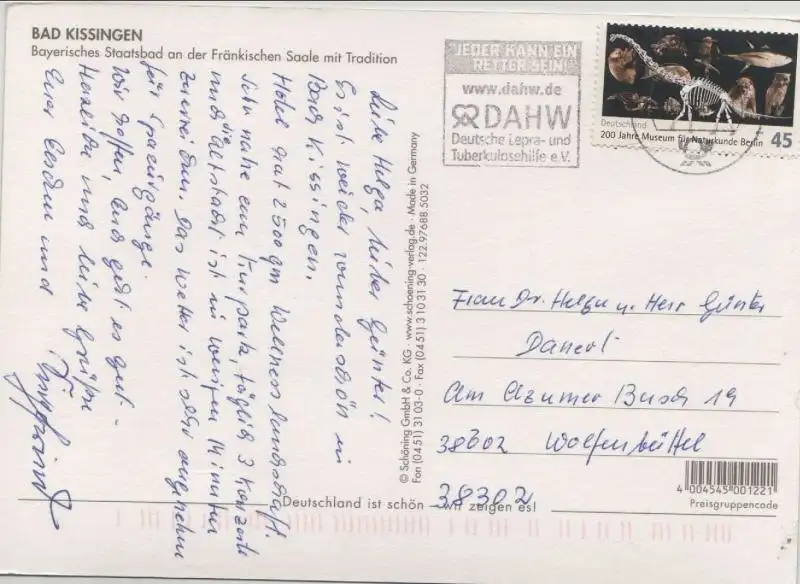 BAD KISSINGEN
Bayerisches Staatsbad an der Fränkischen Saale mit Tradition
Liebe Helga, lieber Günter!
Es ist wieder wunderschön in
Bad Kissingen.
Hotel hat 2500 qm Wellnesslandschaft
Sehr nahe am Kurpark, täglich 3 Konzerte
und die Altstadt ist in wenigen Minuten
zu erreichen. Das Wetter ist sehr angenehm
für Spaziergänge.
Wir hoffen, Euch geht es gut –
Herzliche und liebe Grüße
Euer und
© Schöning GmbH & Co. KG · www.schoening-verlag.de · Made in Germany
Fon (04 51) 31 03-0 · Fax (04 51) 3 10 31 30 · 122.97688.5032
"JEDER KANN EIN
RETTER SEIN!"
www.dahw.de
DAHW
Deutsche Lepra- und
Tuberkulosehilfe e.V.
Deutschland
200 Jahre Museum für Naturkunde Berlin 45
Frau Dr. Helga u. Herr Günter
Am Busch 19
38602 Wolfenbüttel
38302
4 004545 001221
Preisgruppencode
Deutschland ist schön – wir zeigen es!